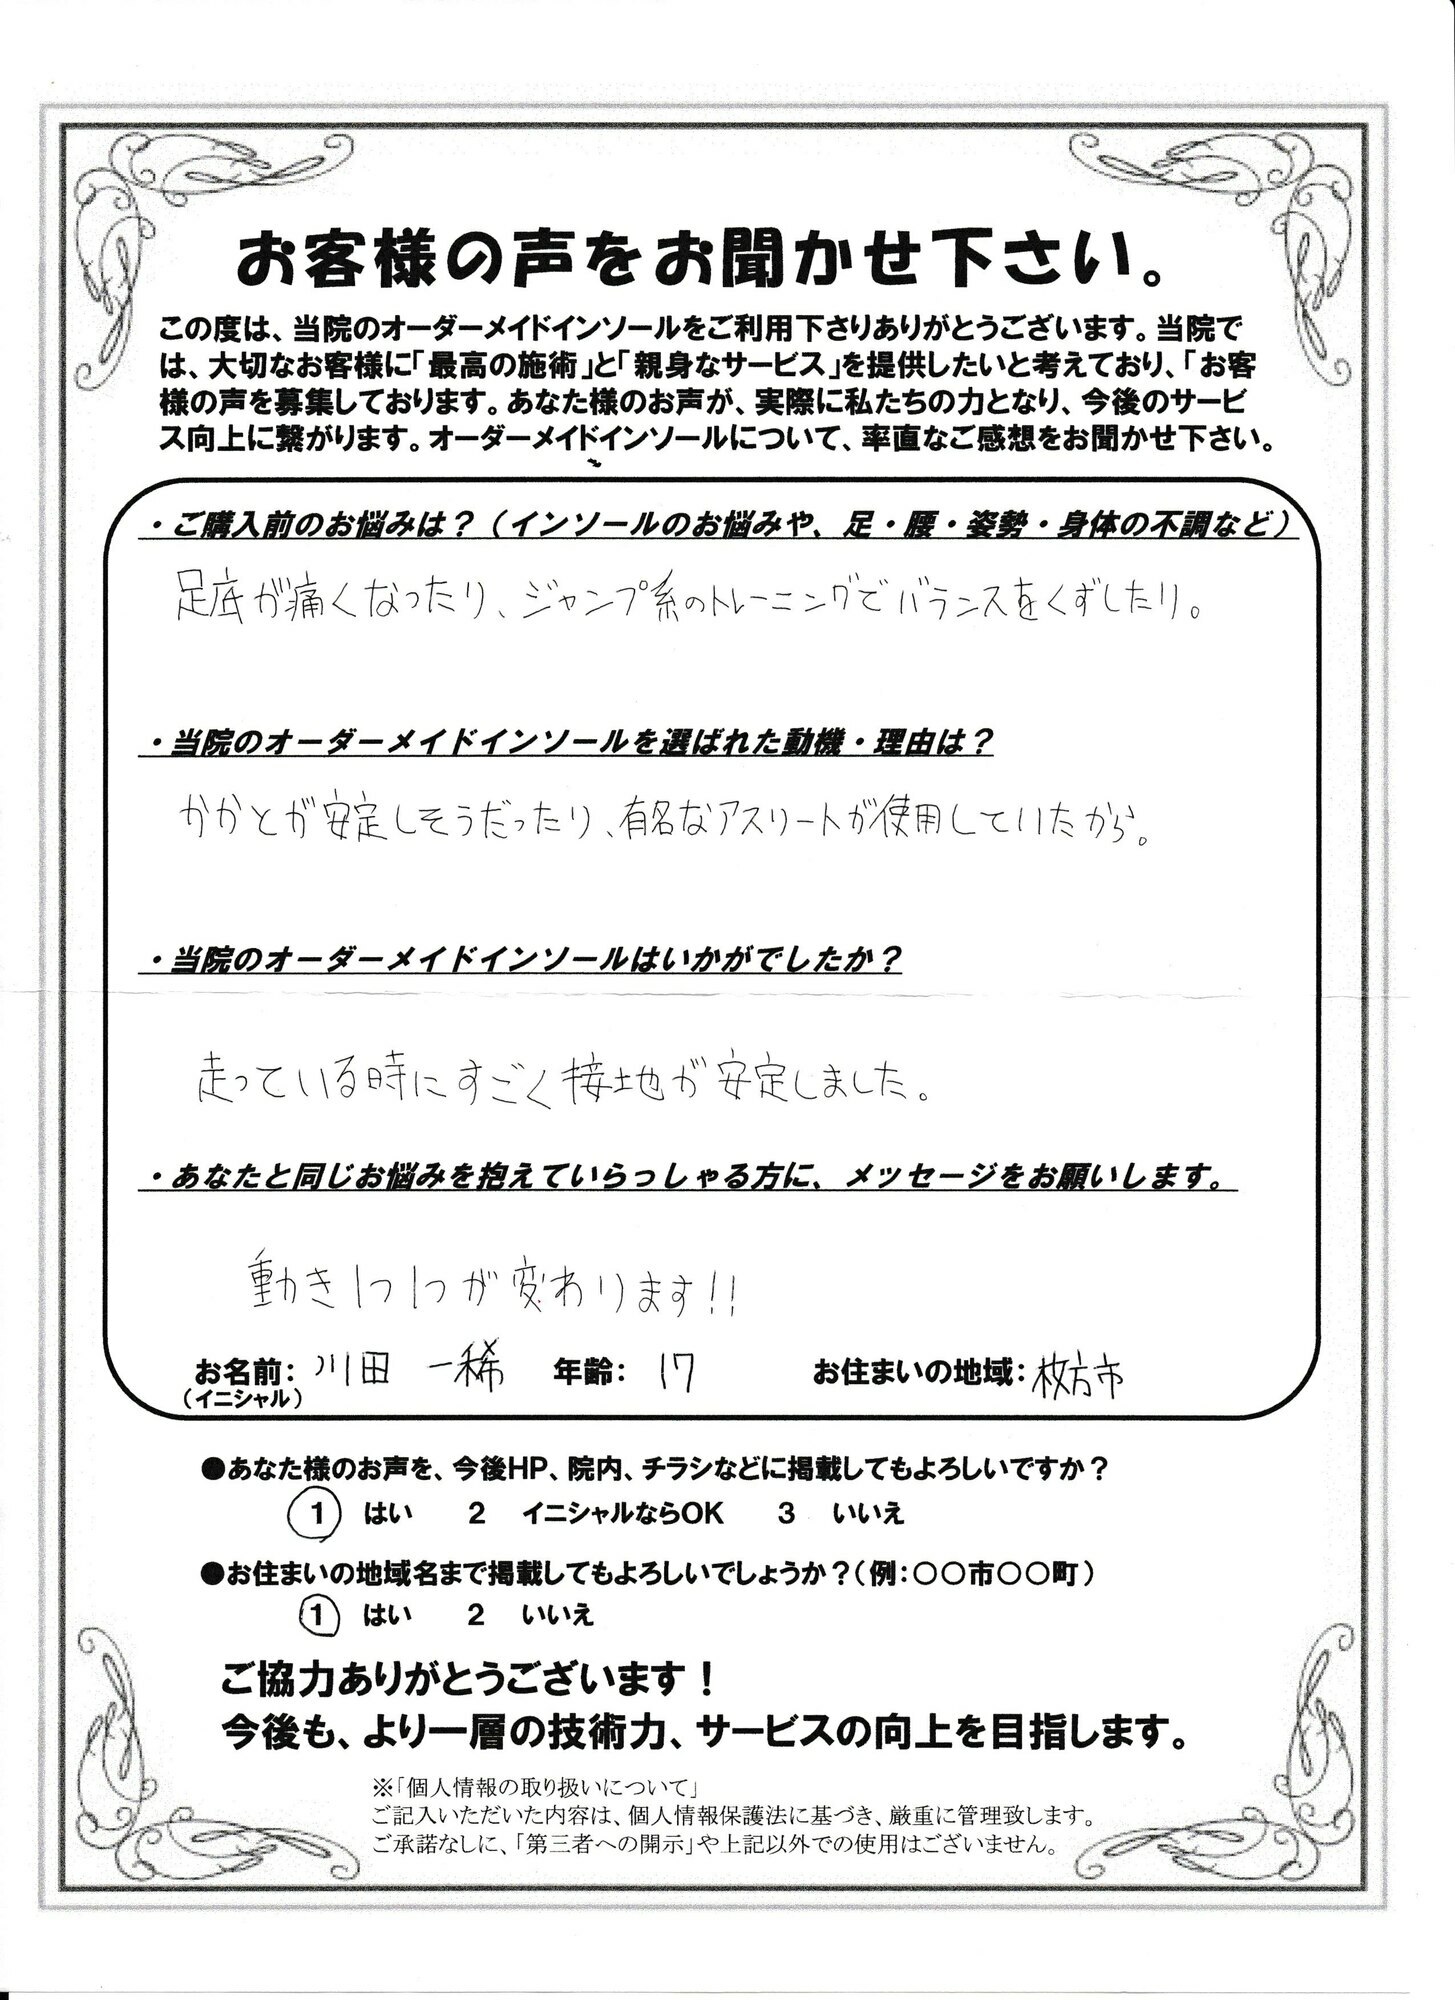 お客様の声をお聞かせ下さい。
この度は、当院のオーダーメイドインソールをご利用下さりありがとうございます。当院で
は、大切なお客様に「最高の施術」と「親身なサービス」を提供したいと考えており、「お客
様の声を募集しております。あなた様のお声が、実際に私たちの力となり、今後のサービ
ス向上に繋がります。オーダーメイドインソールについて、率直なご感想をお聞かせ下さい。
・ご購入前のお悩みは？（インソールのお悩みや、足・腰・姿勢・身体の不調など）
足底が痛くなったり、ジャンプ系のトレーニングでバランスをくずしたり。
・当院のオーダーメイドインソールを選ばれた動機・理由は？
かかとが安定しそうだったり、有名なアスリートが使用していたから。
・当院のオーダーメイドインソールはいかがでしたか？
走っている時にすごく接地が安定しました。
・あなたと同じお悩みを抱えていらっしゃる方に、メッセージをお願いします。
動き1つ1つが変わります!!
お名前：川田 一稀 年齢：17 お住まいの地域：枚方市
（イニシャル）
●あなた様のお声を、今後HP、院内、チラシなどに掲載してもよろしいですか？
1 はい 2 イニシャルならOK 3 いいえ
●お住まいの地域名まで掲載してもよろしいでしょうか？（例：○○市○○町）
1 はい 2 いいえ
ご協力ありがとうございます！
今後も、より一層の技術力、サービスの向上を目指します。
※「個人情報の取り扱いについて」
ご記入いただいた内容は、個人情報保護法に基づき、厳重に管理致します。
ご承諾なしに、「第三者への開示」や上記以外での使用はございません。